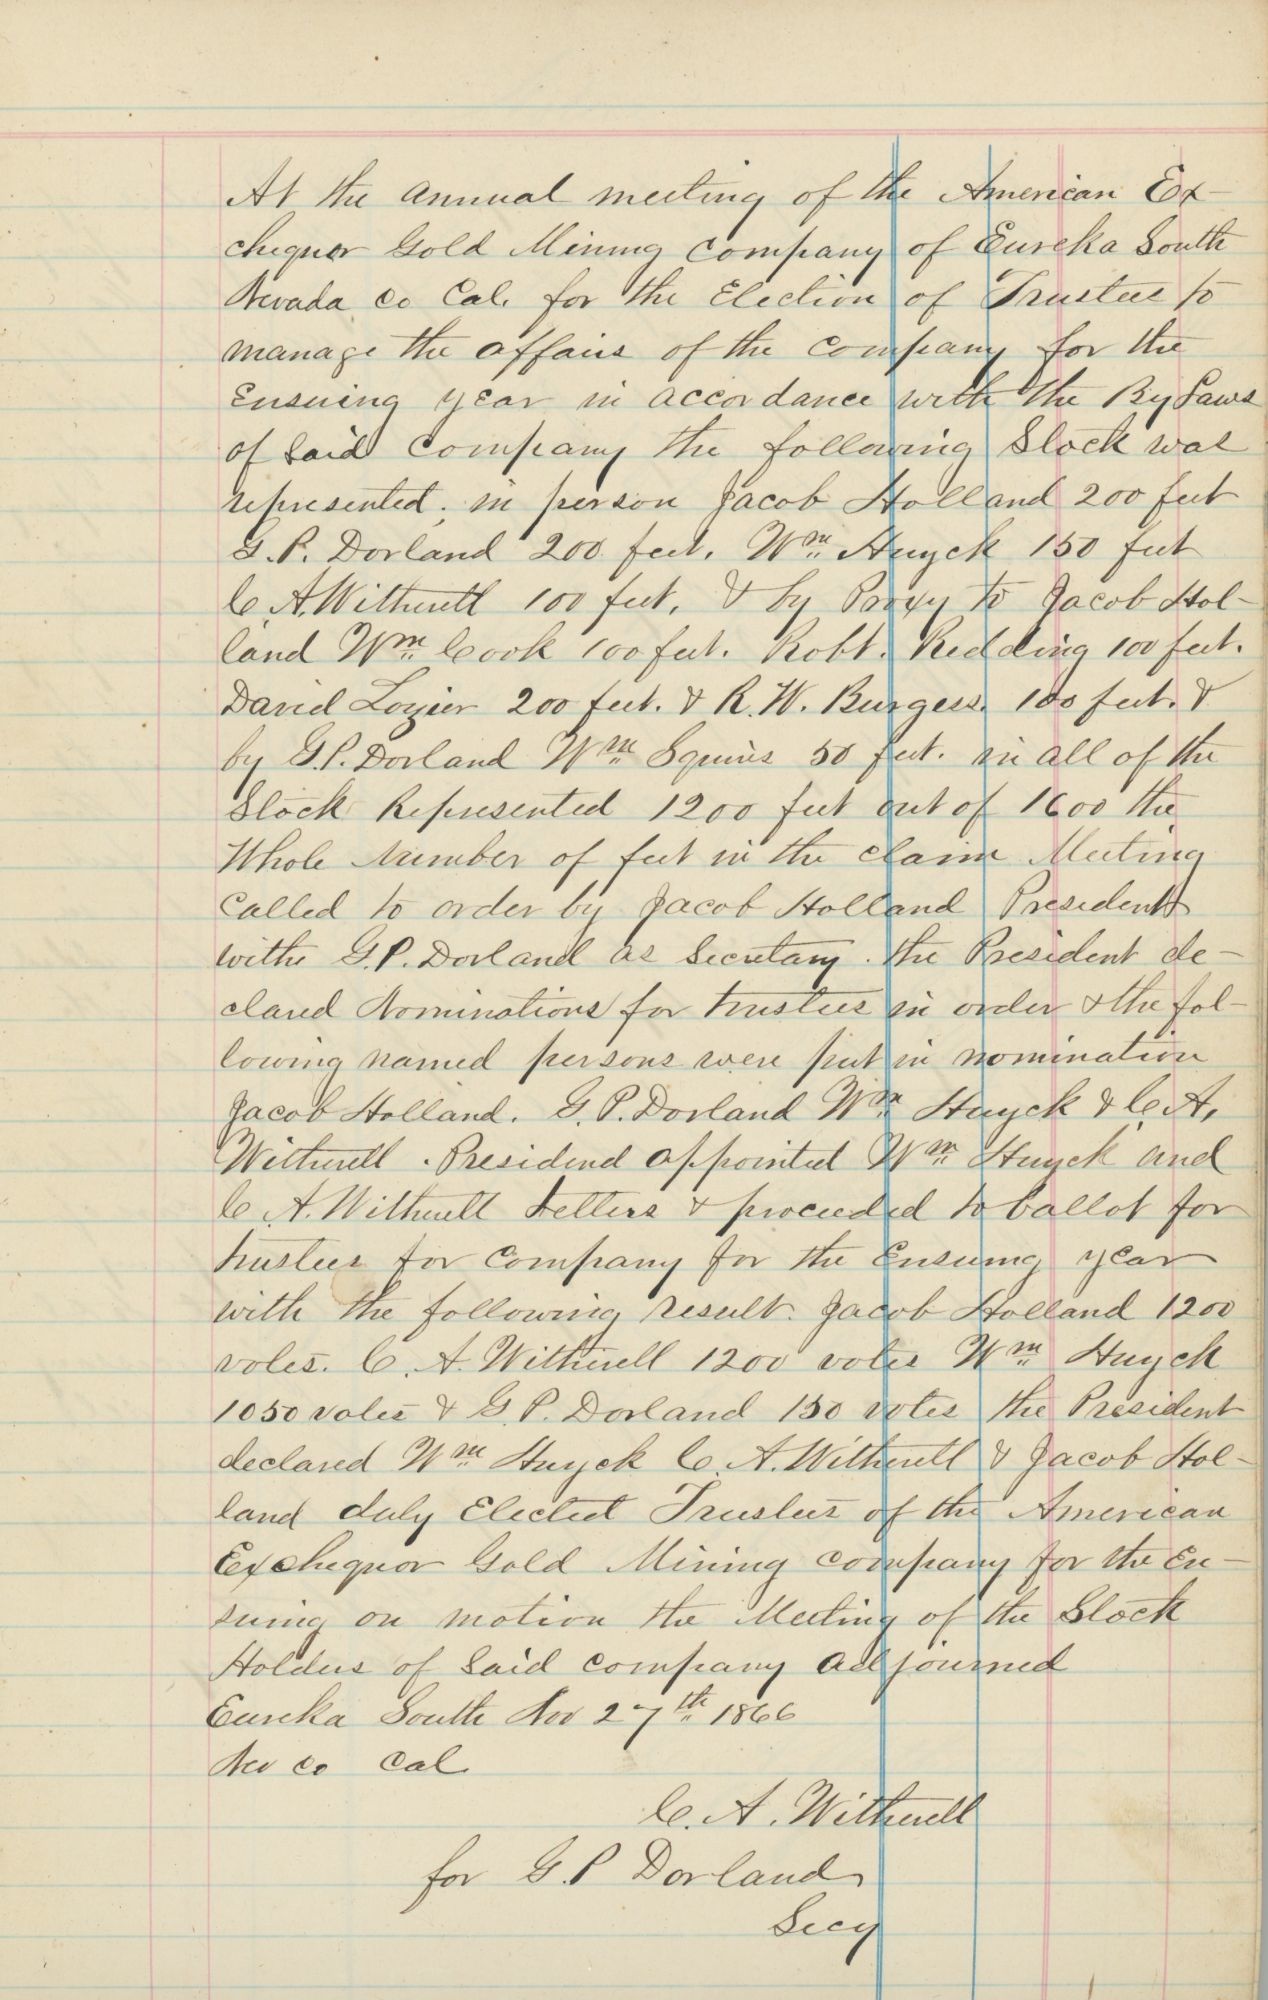 At the annual meeting of the American Ex-
chequer Gold Mining Company of Eureka South
Nevada Co Cal. for the Election of Trustees to
manage the affairs of the company for the
Ensuing year in accordance with the By Laws
of Said Company the following Stock was
represented; in person Jacob Holland 200 feet
G. P. Dorland 200 feet. Wm Huyck 150 feet
C. A. Witherell 100 feet, & by Proxy to Jacob Hol-
land Wm Cook 100 feet. Robt. Redding 100 feet.
David Lozier 200 feet. & R. W. Burgess. 100 feet. &
by G. P. Dorland Wm Squires 50 feet. in all of the
Stock Represented 1200 feet out of 1600 the
Whole Number of feet in the claim Meeting
Called to order by Jacob Holland President
withe G. P. Dorland as Secretary. the President de-
clared Nominations for trustees in order & the fol-
lowing named persons were put in nomination
Jacob Holland. G. P. Dorland Wm Huyck & C. A.
Witherell. Presidend appointed Wm Huyck and
C. A. Witherell tellers & proceeded to ballot for
trustees for company for the Ensuing year
with the following result. Jacob Holland 1200
votes. C. A. Witherell 1200 votes Wm Huyck
1050 votes & G. P. Dorland 150 votes the President
declared Wm Huyck C. A. Witherell & Jacob Hol-
land duly Elected Trustees of the American
Exchequor Gold Mining Company for the En-
suing on motion the Meeting of the Stock
Holders of Said company adjourned
Eureka South Nov 27th 1866
Nev Co Cal
C. A. Witherell
for G. P Dorland
Secy